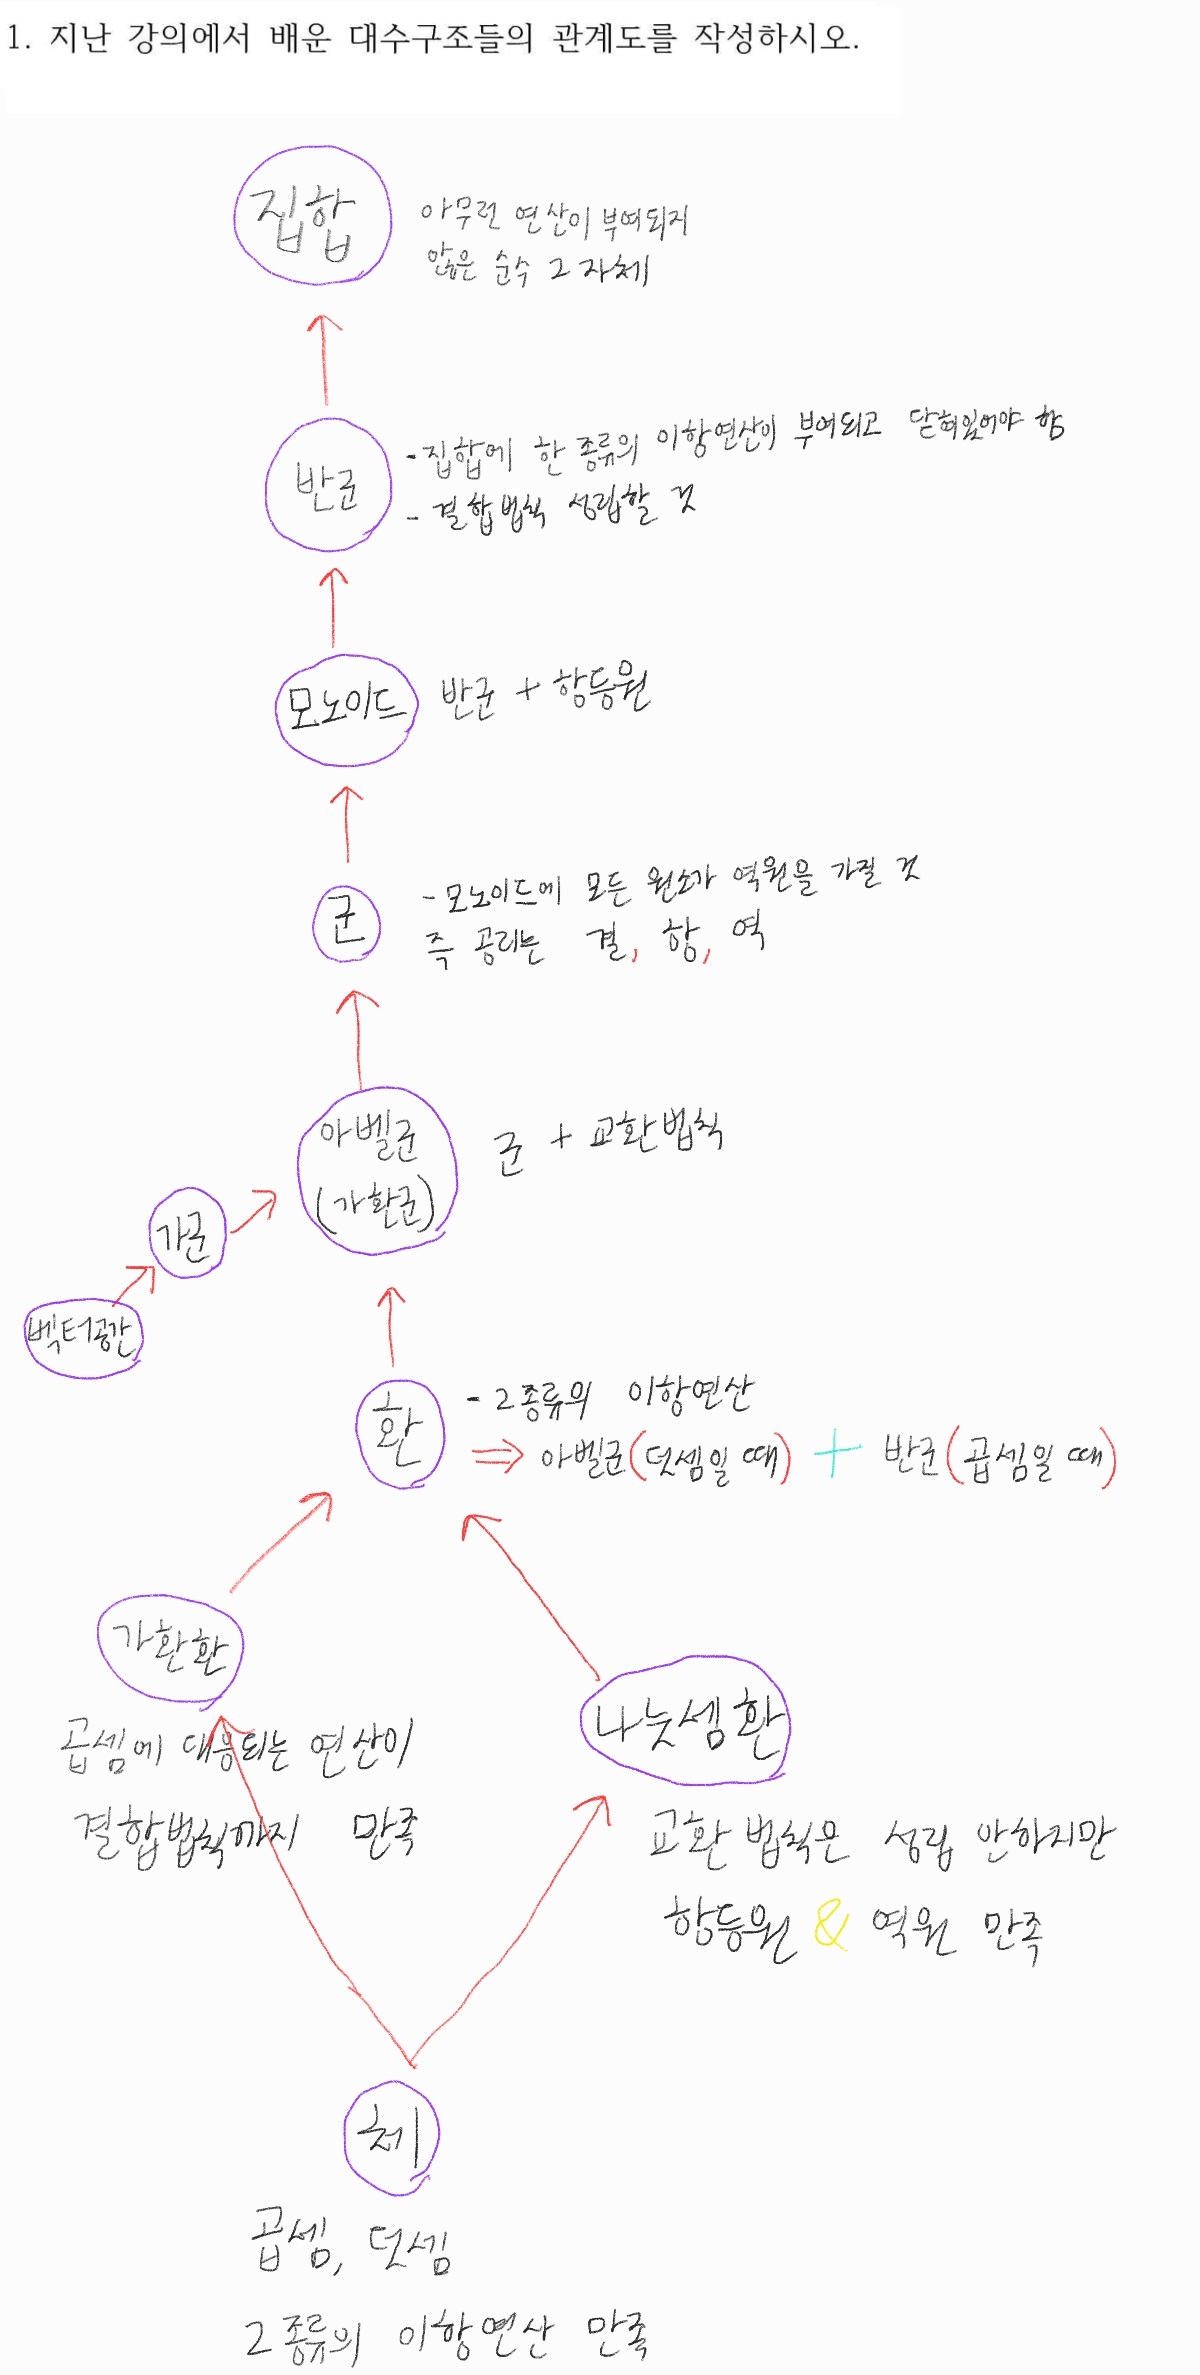 1. 지난 강의에서 배운 대수구조들의 관계도를 작성하시오.
집합
아무런 연산이 부여되지
않은 순수 그 자체
반군
- 집합에 한 종류의 이항연산이 부여되고 닫혀있어야 함
- 결합법칙 성립할 것
모노이드
반군 + 항등원
군
- 모노이드에 모든 원소가 역원을 가질 것
즉 공리는 결, 항, 역
아벨군
(가환군)
군 + 교환법칙
가군
벡터공간
환
- 2종류의 이항연산
⇒ 아벨군(덧셈일 때) + 반군(곱셈일 때)
가환환
곱셈에 대응되는 연산이
결합법칙까지 만족
나눗셈환
교환 법칙은 성립 안하지만
항등원 & 역원 만족
체
곱셈, 덧셈
2종류의 이항연산 만족